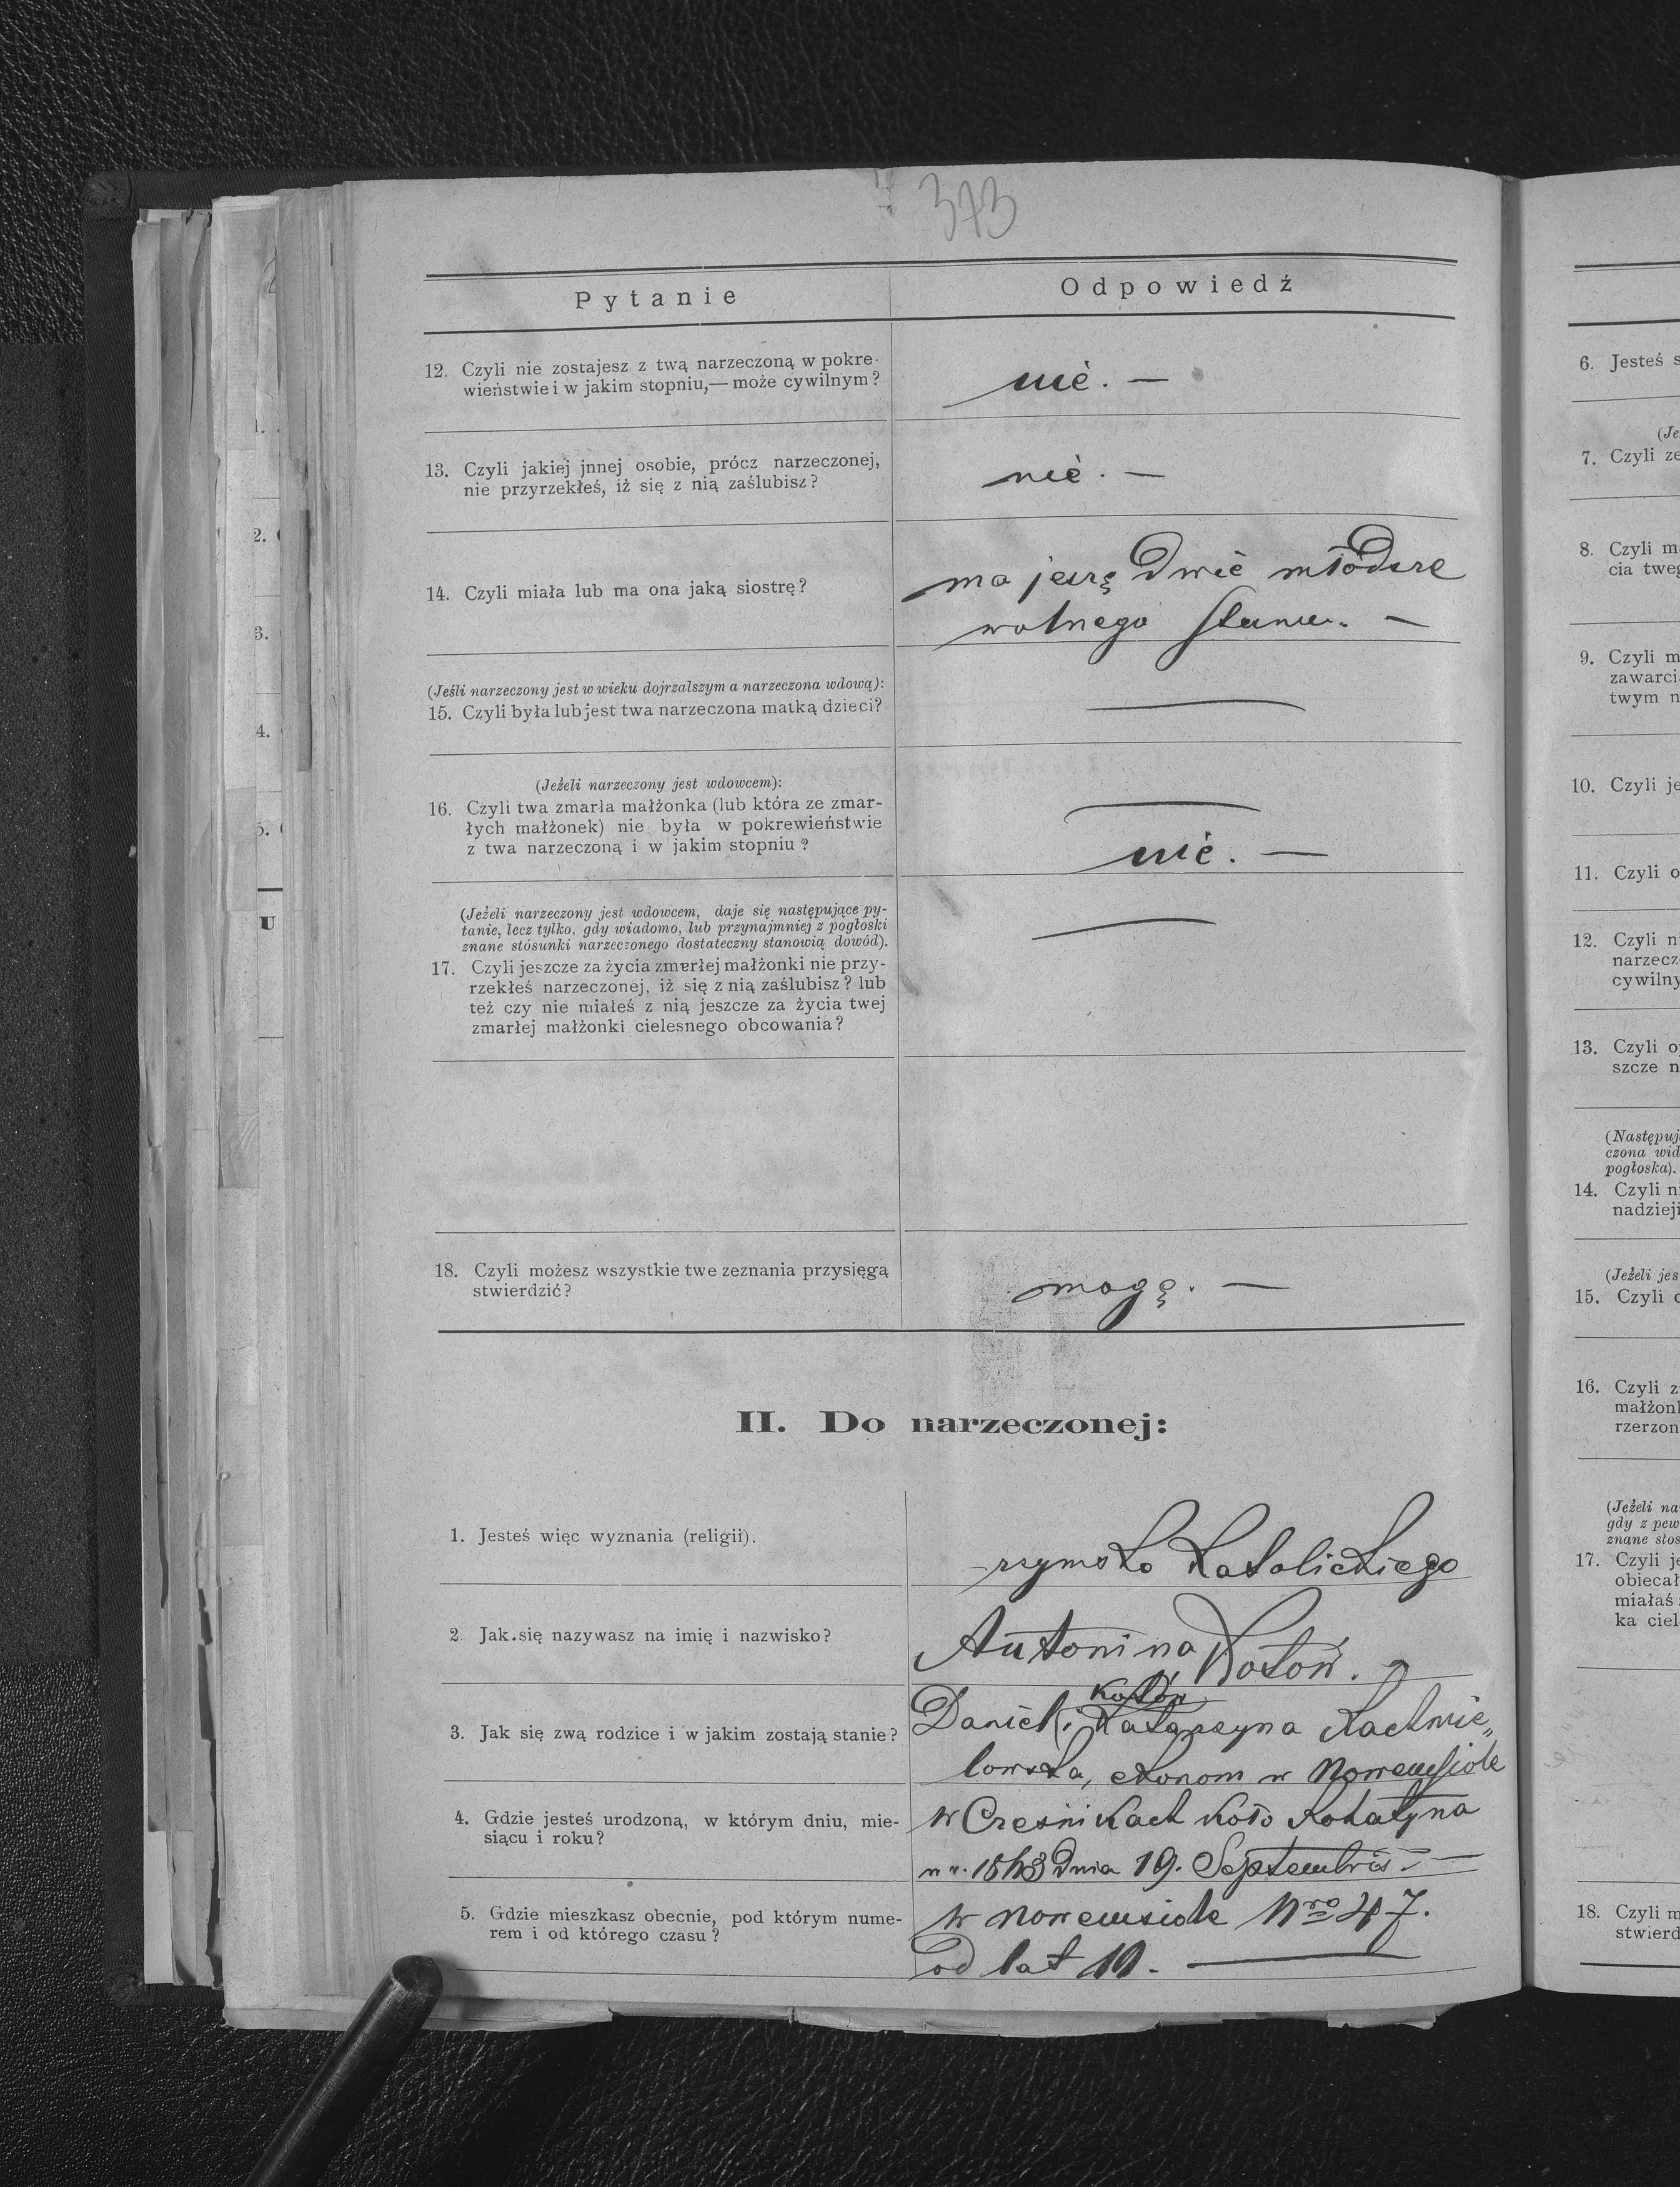 373
Pytanie
Odpowiedź
12. Czyli nie zostajesz z twą narzeczoną w pokre-
wieństwie i w jakim stopniu,— może cywilnym?
nie. —
13. Czyli jakiej jnnej osobie, prócz narzeczonej,
nie przyrzekłeś, iż się z nią zaślubisz?
nie. —
14. Czyli miała lub ma ona jaką siostrę?
ma jeszcę dwie młódsze
wolnego stanu. —
(Jeśli narzeczony jest w wieku dojrzalszym a narzeczona wdową):
15. Czyli była lub jest twa narzeczona matką dzieci?
(Jeżeli narzeczony jest wdowcem):
16. Czyli twa zmarła małżonka (lub która ze zmar-
łych małżonek) nie była w pokrewieństwie
z twa narzeczoną i w jakim stopniu?
nie. —
(Jeżeli narzeczony jest wdowcem, daje się następujące py-
tanie, lecz tylko, gdy wiadomo, lub przynajmniej z pogłoski
znane stósunki narzeczonego dostateczny stanowią dowód).
17. Czyli jeszcze za życia zmerłej małżonki nie przy-
rzekłeś narzeczonej, iż się z nią zaślubisz? lub
też czy nie miałeś z nią jeszcze za życia twej
zmarłej małżonki cielesnego obcowania?
18. Czyli możesz wszystkie twe zeznania przysięgą
stwierdzić?
mogę. —
II. Do narzeczonej:
1. Jesteś więc wyznania (religii).
rzymsko katolickiego
2. Jak się nazywasz na imię i nazwisko?
Antonina Kotoń.
3. Jak się zwą rodzice i w jakim zostają stanie?
Daniel i Katarzyna
ekonom w Nowemsiole
4. Gdzie jesteś urodzoną, w którym dniu, mie-
siącu i roku?
w Cześnikach koło Rohatyna
dnia 19. Septembris —
5. Gdzie mieszkasz obecnie, pod którym nume-
rem i od którego czasu?
w Nowemsiole Nro 47.
od lat
6. Jesteś
7. Czyli
8. Czyli
cia
9. Czyli
twym
10. Czyli
11. Czyli
12. Czyli
13. Czyli
szcze
czona
pogłoska).
14. Czyli
15. Czyli
16. Czyli
(Jeżeli
znane
17. Czyli
miałaś
18. Czyli